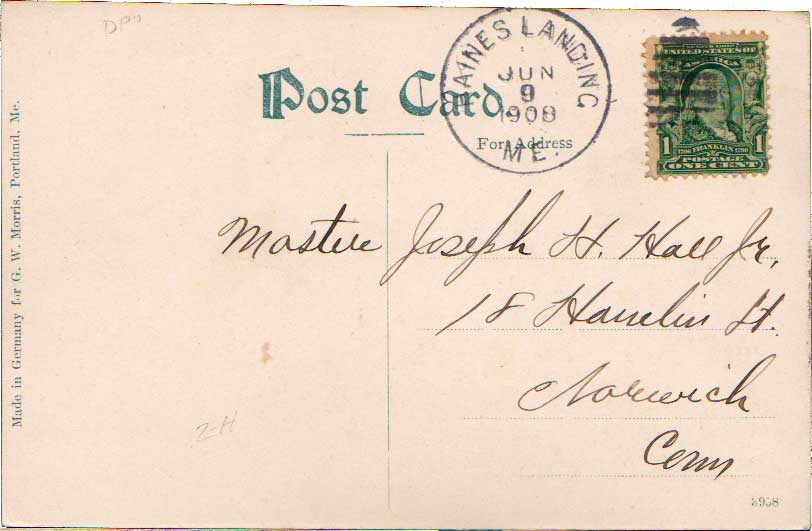 DPO
Post Card.
For Address
RAINES LANDING
JUN
9
1908
ME.
UNITED STATES OF
AMERICA
1 1706 FRANKLIN 1790 1
POSTAGE
ONE CENT
Master Joseph H. Hall Jr,
18 Hamlin St.
Norwich
Conn
2-H
Made in Germany for G. W. Morris, Portland, Me.